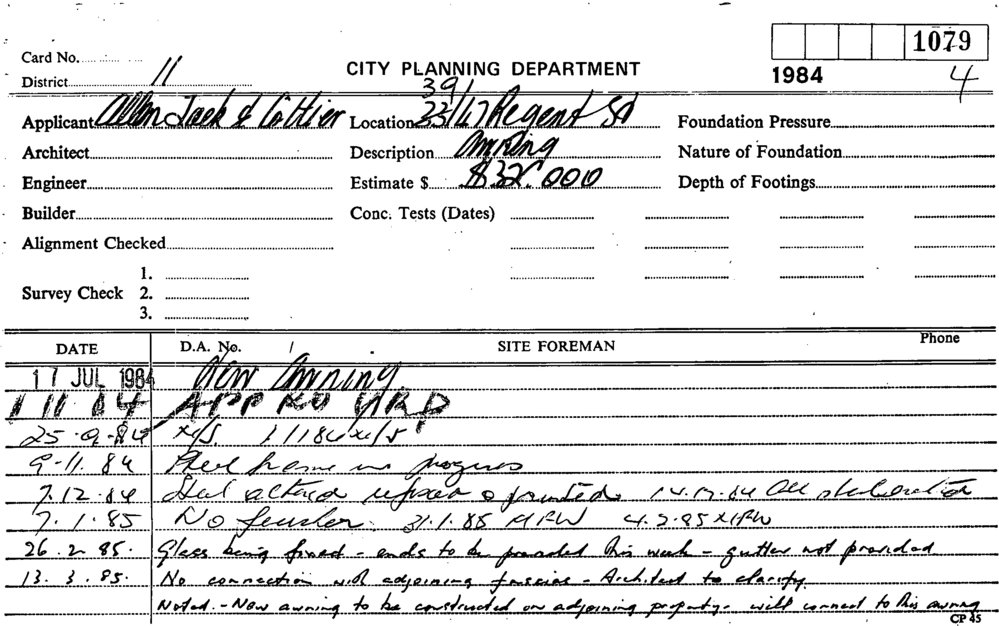 1079
Card No.
CITY PLANNING DEPARTMENT
1984 4
District 11
39/
Applicant Allen Jack & Cottier Location 33/47 Regent St Foundation Pressure
Architect Description Awning Nature of Foundation
Engineer Estimate $ $32,000 Depth of Footings
Builder Conc. Tests (Dates)
Alignment Checked
1.
Survey Check 2.
3.
DATE D.A. No. SITE FOREMAN Phone
17 JUL 1984 New Awning
84 APPROVED
25.9.84
9-11.84 Steel frame in progress
7.12.84 Steel & painted 14.12.84 All
7.1.85 No 31.1.85 4.2.85
26.2.85. Glass being fixed - ends to be provided this week - gutter not provided
13.3.85. No connection with adjoining fascias - Architect to clarify.
Noted. - New awning to be constructed on adjoining property - will connect to this awning
CP 45